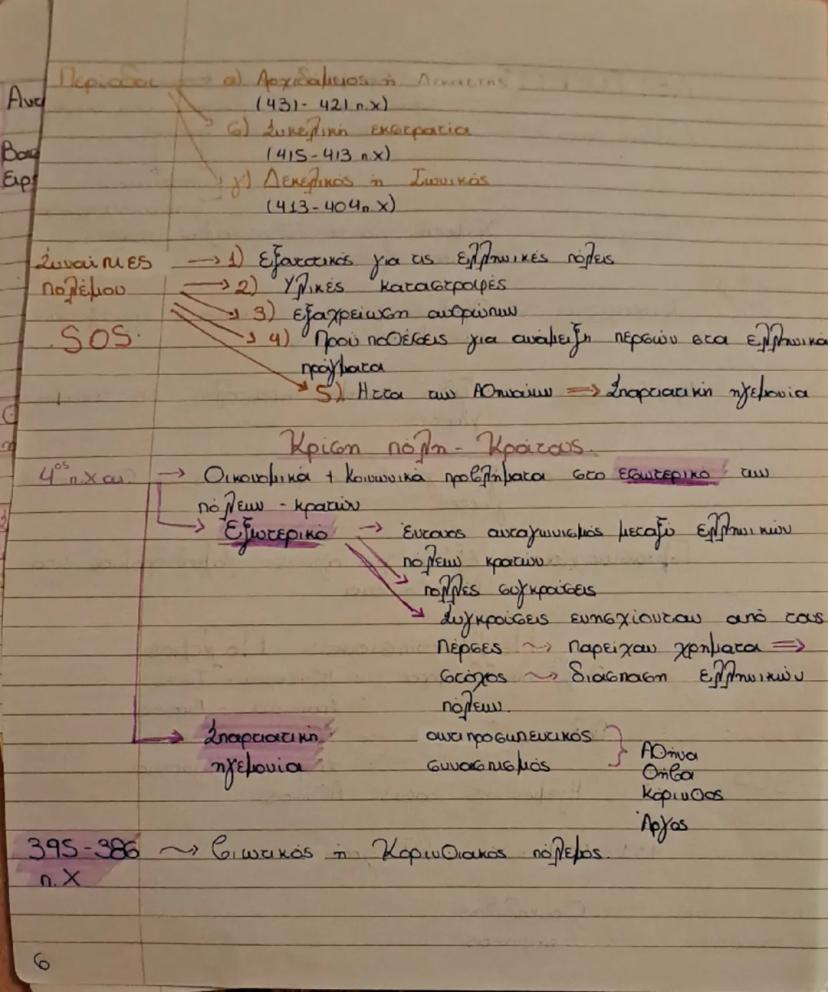 Περίοδοι → α) Αρχιδάμειος ή Δεκαετής
(431 - 421 π.χ)
β) Σικελική εκστρατία
(415 - 413 π.χ)
γ) Δεκελικός ή Ιωνικός
(413 - 404 π.χ)
Συναίπιες → 1) εξοντοτικός για τις ελληνικές πόλεις
πολέμου → 2) Υλικές καταστροφές
→ 3) εξαχρείωση ανθρώπων
SOS. → 4) Προϋποθέσεις για ανάμειξη περσών στα ελληνικά
πράγματα
→ 5) Ηττα των Αθηναίων ⇒ Σπαρτιατική ηγεμονία
Κρίση πόλη - Κράτους.
4ος π.χ αι → Οικονομικά + Κοινωνικά προβλήματα στο εσωτερικό των
πόλεων - κρατών
→ Εξωτερικό → Έντονος ανταγωνισμός μεταξύ ελληνικών
πόλεων κρατών
→ πολλές συγκρούσεις
→ Συγκρούσεις ενησχίονταν από τους
Πέρσες ⤳ Παρείχαν χρήματα ⇒
στόχος ⤳ διάσπαση ελληνικών
πόλεων.
→ Σπαρτιατική αντιπροσωπευτικός
ηγεμονία συνασπισμός } Αθήνα
Θήβα
Κόρινθος
Άργος
395-386 ⤳ βιωτικός ή Κορινθιακός πόλεμος.
π.Χ
6
Ανα
Βοη
Ειρ